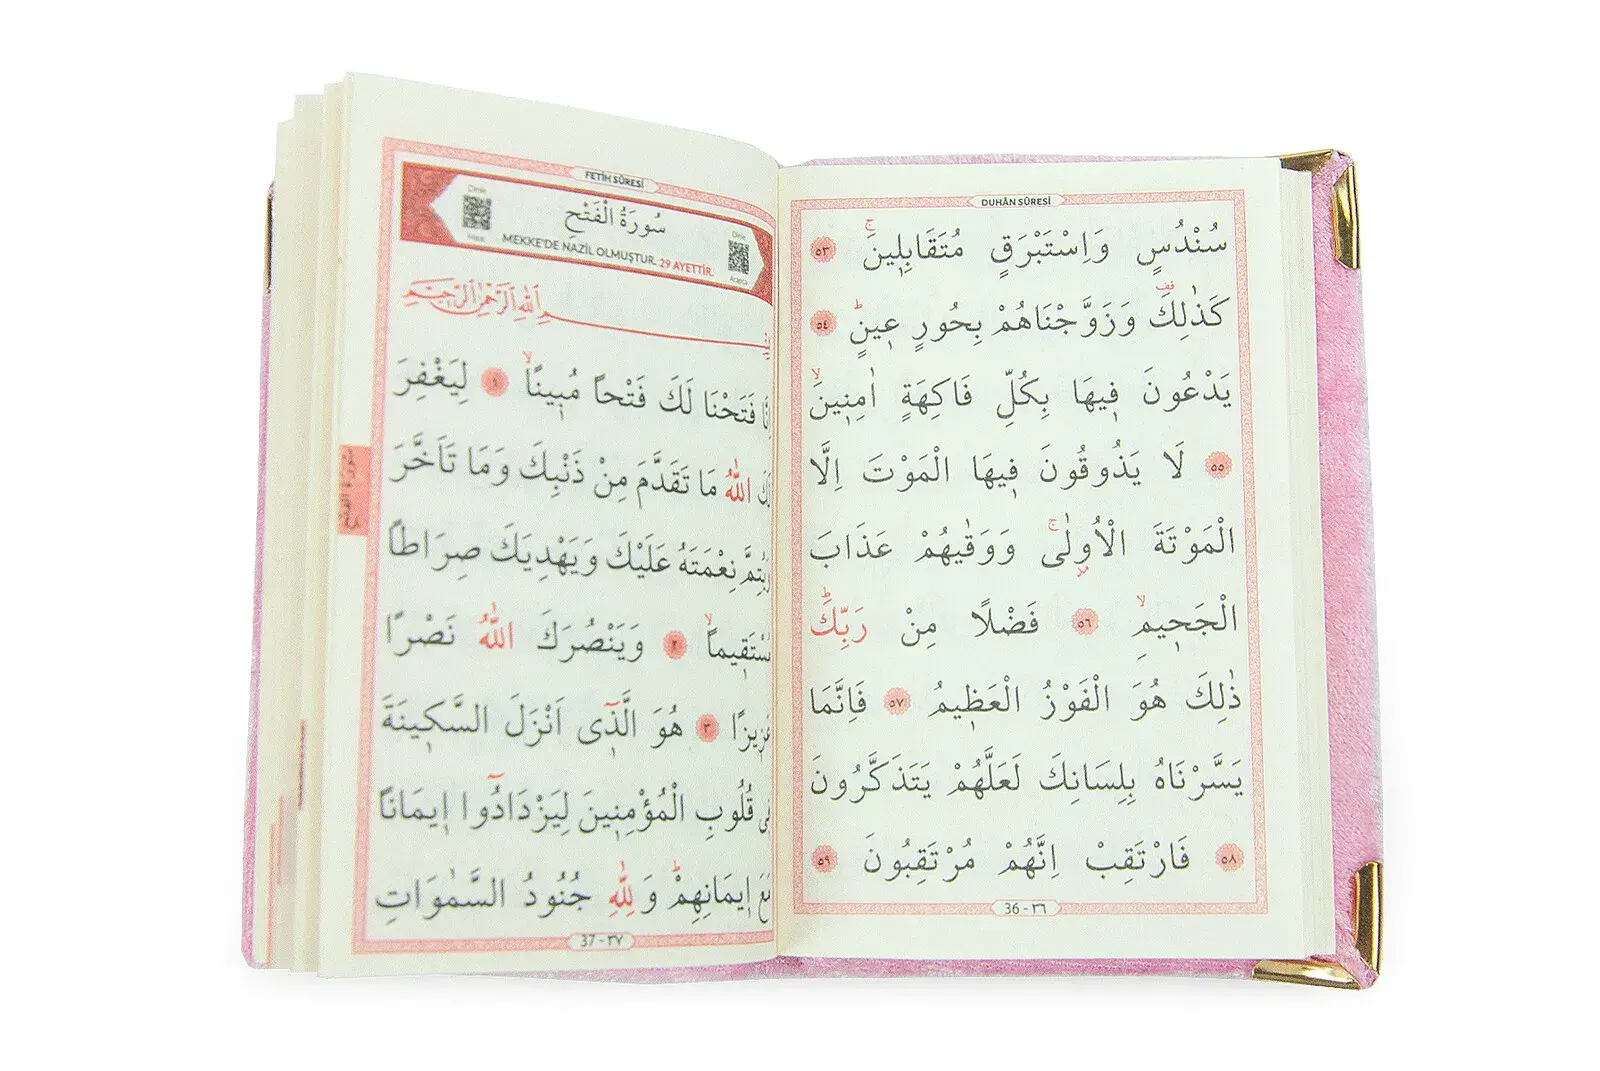 DUHÂN SÛRESİ
سُنْدُسٍ وَاِسْتَبْرَقٍ مُتَقَابِلٖينَۚ ٥٣
كَذٰلِكَ۠ وَزَوَّجْنَاهُمْ بِحُورٍ عٖينٍؕ ٥٤
يَدْعُونَ فٖيهَا بِكُلِّ فَاكِهَةٍ اٰمِنٖينَۙ
٥٥ لَا يَذُوقُونَ فٖيهَا الْمَوْتَ اِلَّا
الْمَوْتَةَ الْاُولٰىۚ وَوَقٰيهُمْ عَذَابَ
الْجَحٖيمِۙ ٥٦ فَضْلًا مِنْ رَبِّكَؕ
ذٰلِكَ هُوَ الْفَوْزُ الْعَظٖيمُ ٥٧ فَاِنَّمَا
يَسَّرْنَاهُ بِلِسَانِكَ لَعَلَّهُمْ يَتَذَكَّرُونَ
٥٨ فَارْتَقِبْ اِنَّهُمْ مُرْتَقِبُونَ ٥٩
36 - ٣٦
FETİH SÛRESİ
سُورَةُ الْفَتْحِ
MEKKE'DE NAZİL OLMUŞTUR. 29 AYETTİR.
اللّٰهِ الرَّحْمٰنِ الرَّحٖيمِ
فَتَحْنَا لَكَ فَتْحاً مُبٖيناًۙ ١ لِيَغْفِرَ
اللّٰهُ مَا تَقَدَّمَ مِنْ ذَنْبِكَ وَمَا تَاَخَّرَ
وَيُتِمَّ نِعْمَتَهُ عَلَيْكَ وَيَهْدِيَكَ صِرَاطاً
مُسْتَقٖيماًۙ ٢ وَيَنْصُرَكَ اللّٰهُ نَصْرًا
عَزٖيزًا ٣ هُوَ الَّذٖٓى اَنْزَلَ السَّكٖينَةَ
فٖى قُلُوبِ الْمُؤْمِنٖينَ لِيَزْدَادُٓوا اٖيمَانًا
مَعَ اٖيمَانِهِمْؕ وَلِلّٰهِ جُنُودُ السَّمٰوَاتِ
37 - ٣٧
سورة الفتح